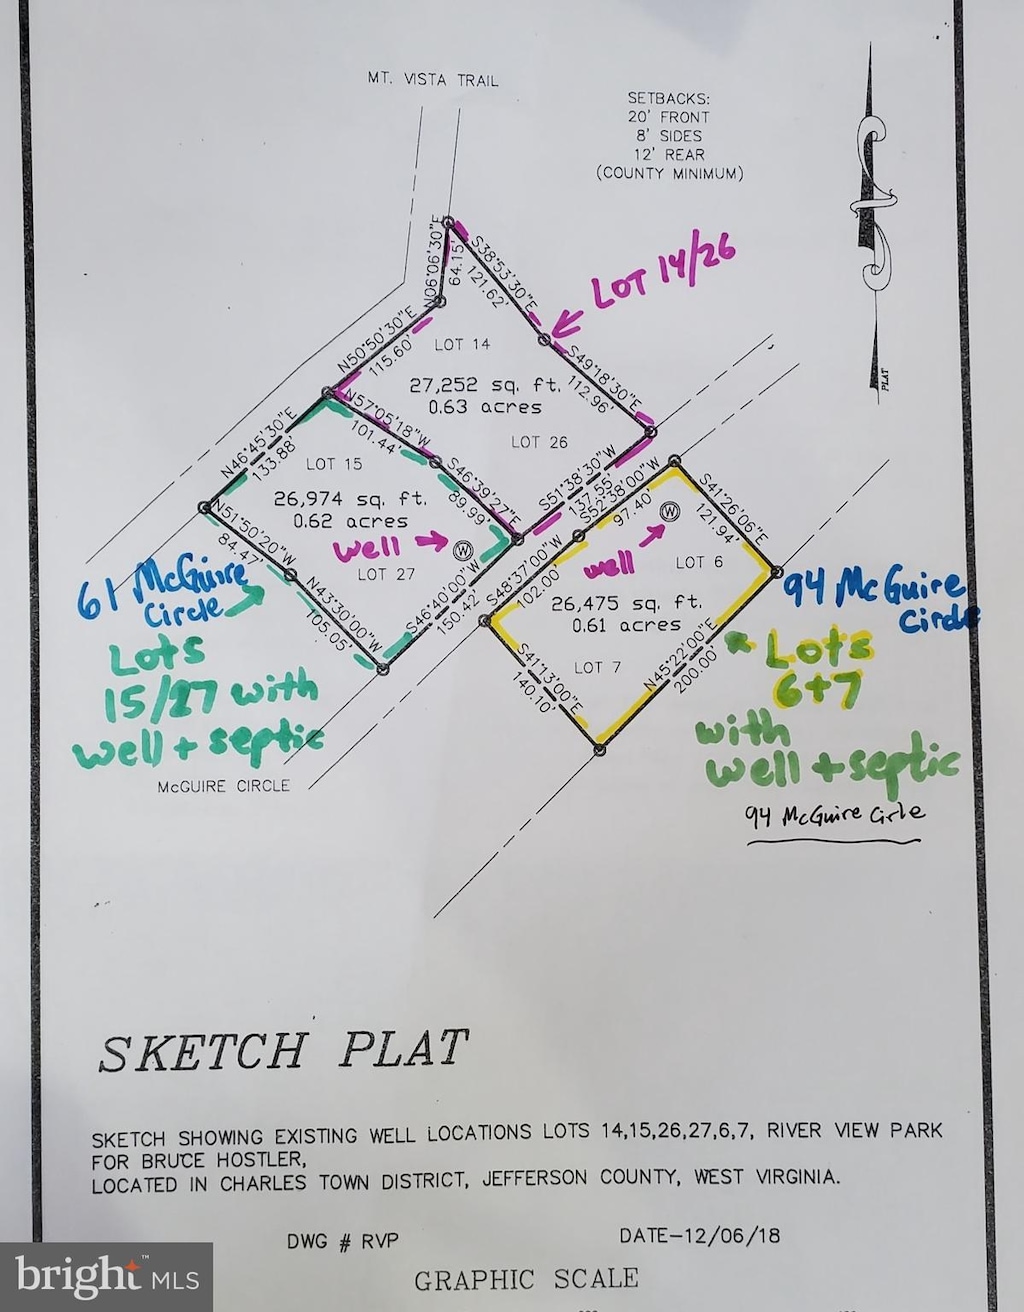 MT. VISTA TRAIL
SETBACKS:
20' FRONT
8' SIDES
12' REAR
(COUNTY MINIMUM)
PLAT
N06°06'30"E
64.15'
S38°53'30"E
121.62'
LOT 14/26
N50°50'30"E
115.60'
LOT 14
S49°18'30"E
112.96'
27,252 sq. ft.
0.63 acres
LOT 26
N57°05'18"W
101.44'
N46°45'30"E
133.88'
LOT 15
S46°39'27"E
89.99'
S51°38'30"W
137.65'
26,974 sq. ft.
0.62 acres
well
W
LOT 27
N51°50'20"W
84.47'
N43°30'00"W
105.05'
S46°40'00"W
150.42'
S52°38'00"W
97.40'
W
well
S41°26'06"E
121.94'
LOT 6
S48°37'00"W
102.00'
26,475 sq. ft.
0.61 acres
LOT 7
S41°13'00"E
140.10'
N45°22'00"E
200.00'
61 McGuire
Circle
Lots
15/27 with
well + septic
94 McGuire
Circle
Lots
6+7
with
well + septic
94 McGuire Cirle
McGUIRE CIRCLE
SKETCH PLAT
SKETCH SHOWING EXISTING WELL LOCATIONS LOTS 14,15,26,27,6,7, RIVER VIEW PARK
FOR BRUCE HOSTLER,
LOCATED IN CHARLES TOWN DISTRICT, JEFFERSON COUNTY, WEST VIRGINIA.
DWG # RVP
DATE-12/06/18
GRAPHIC SCALE
bright™ MLS